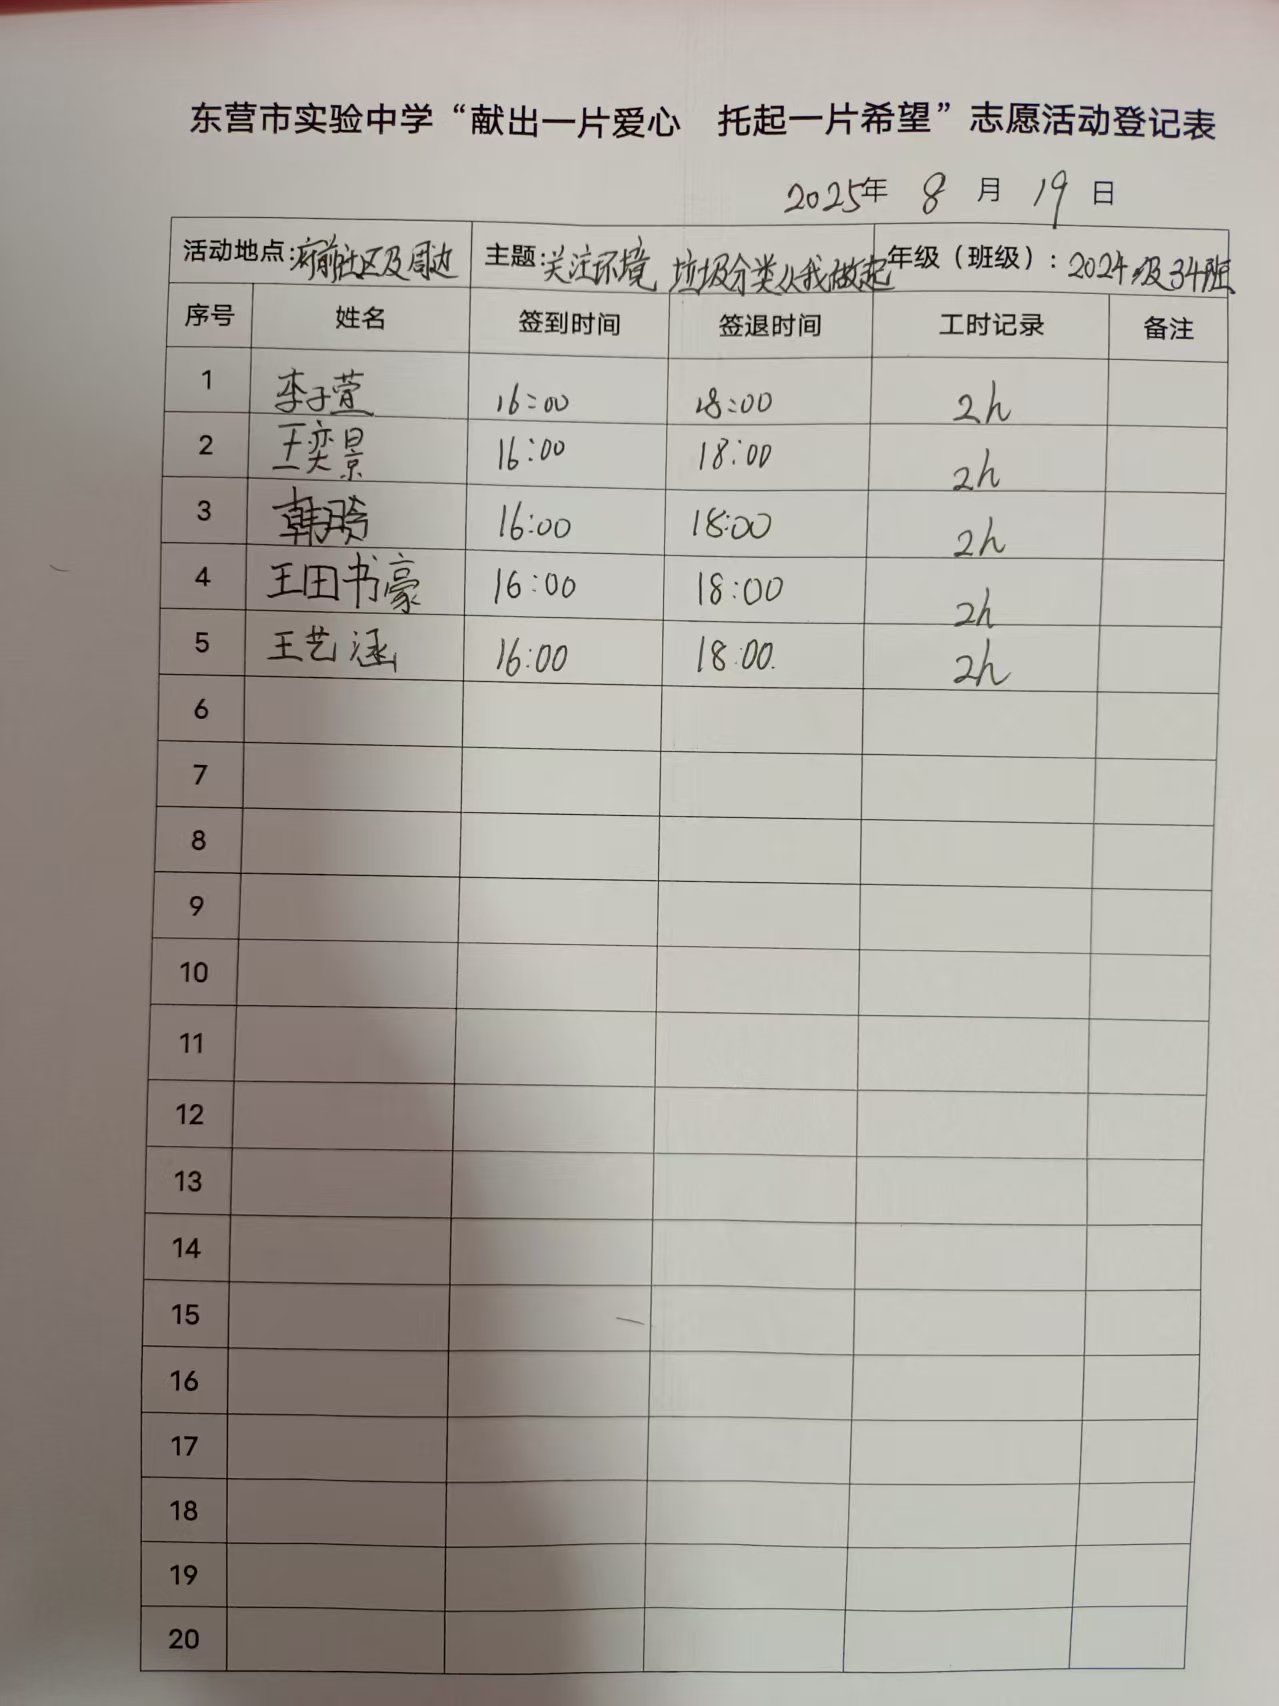 东营市实验中学“献出一片爱心 托起一片希望”志愿活动登记表
2025年 8 月 19 日
活动地点:府前社区及周边 主题:关注环境 垃圾分类从我做起 年级（班级）: 2024级34班
序号 姓名 签到时间 签退时间 工时记录 备注
1 李子萱 16:00 18:00 2h
2 王奕景 16:00 18:00 2h
3 韩 16:00 18:00 2h
4 王田书豪 16:00 18:00 2h
5 王艺涵 16:00 18:00. 2h
6
7
8
9
10
11
12
13
14
15
16
17
18
19
20